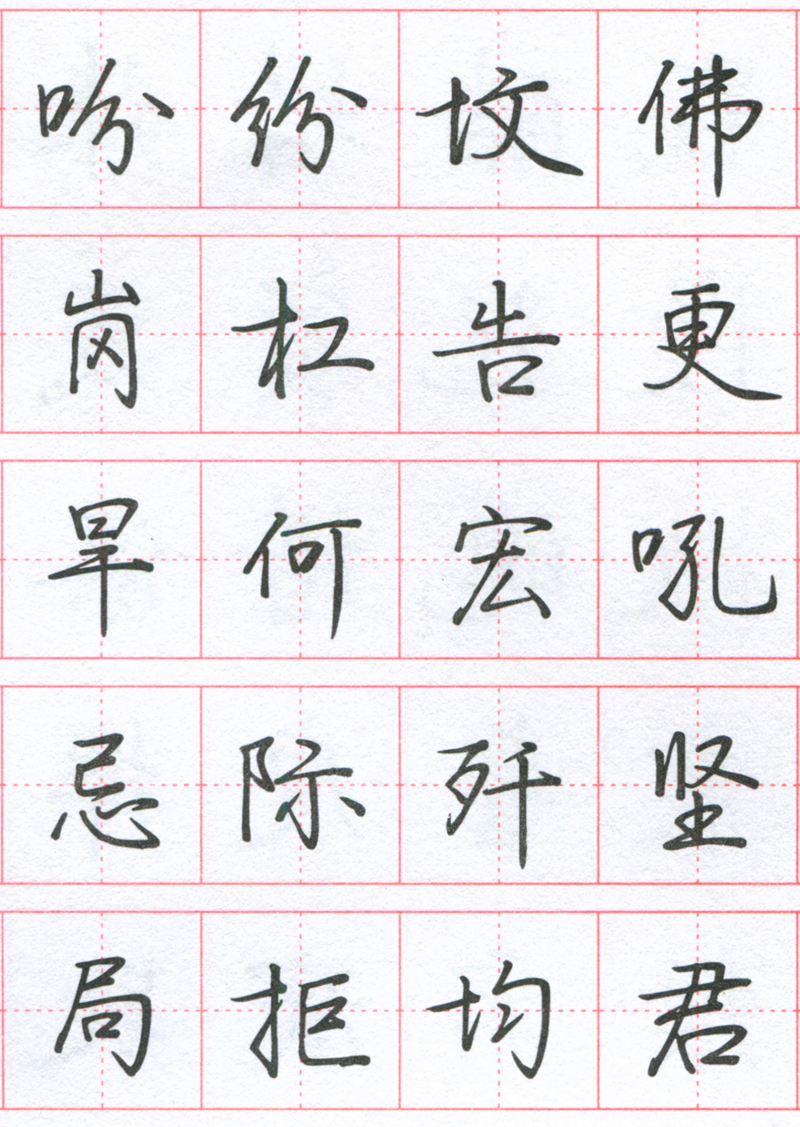 吩纷坟佛
岗杠告更
旱何宏吼
忌际歼坚
局拒均君